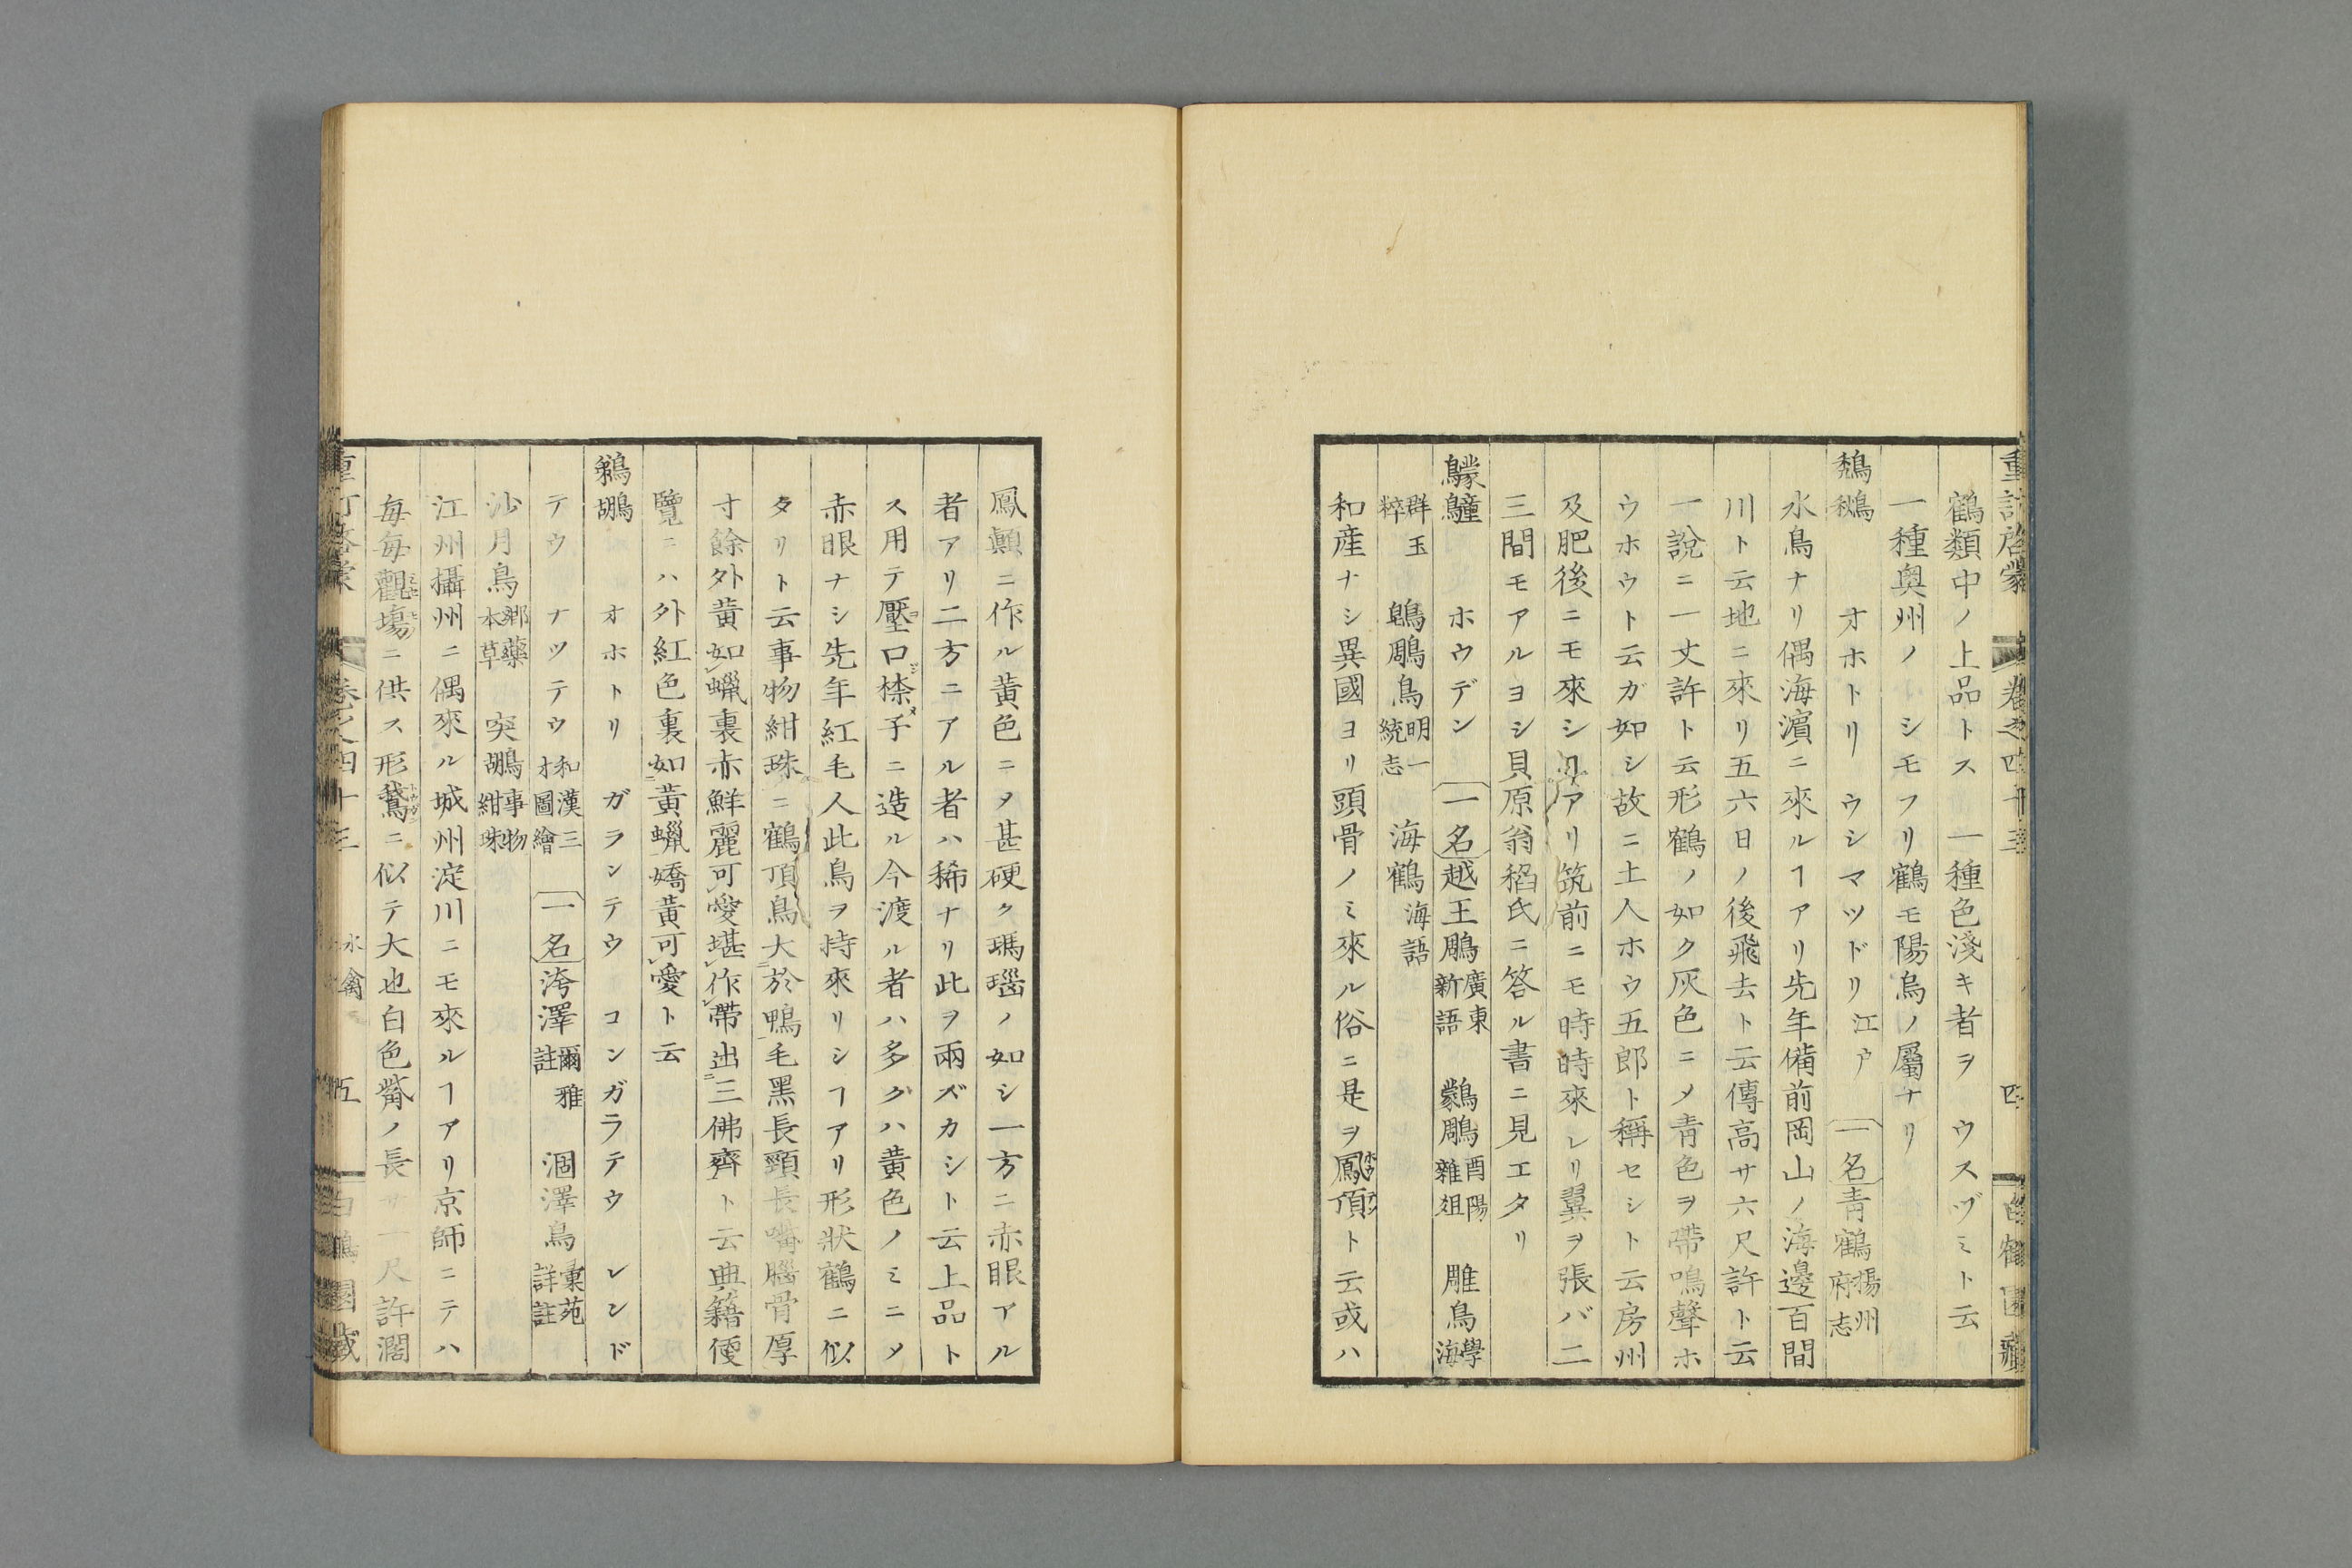 鶴類中ノ上品トス　一種色淺キ者ヲ　ウスヅミト云
一種奥州ノ　シモフリ鶴モ陽烏ノ屬ナリ
鵚鶖　オホトリ　ウシマツドリ江戸　一名青鶴揚州府志
水鳥ナリ偶海濵ニ來ルヿアリ先年備前岡山ノ海邊百間
川ト云地ニ來リ五六日ノ後飛去ト云傳高サ六尺許ト云
一說ニ一丈許ト云形鶴ノ如ク灰色ニメ青色ヲ帶鳴聲ホ
ウホウト云ガ如シ故ニ土人ホウ五郎ト稱セシト云房州
及肥後ニモ來シヿアリ筑前ニモ時時來レリ翼ヲ張バ二
三間モアルヨシ貝原翁稻氏ニ答ル書ニ見エタリ
鸏鶴　ホウデン　一名越王鵰廣東新語　鸏鵰酉陽雜俎　雕鳥學海
群玉　鵰鳥明一統志　海鶴海語
和産ナシ異國ヨリ頭骨ノミ來ル俗ニ是ヲ鳳頂ト云或ハ
鳳顛ニ作ル黄色ニヲ甚硬ク瑪瑙ノ如シ一方ニ赤眼アル
者アリ二方ニアル者ハ稀ナリ此ヲ兩ズカシト云上品ト
ス用テ壓口榛子ニ造ル今渡ル者ハ多グハ黄色ノミニメ
赤眼ナシ先年紅毛人此鳥ヲ持來リシヿアリ形狀鶴ニ似
タリト云事物紺珠ニ鶴頂鳥大於鴨毛黑長頸長嘴腦骨厚
寸餘外黄如蠟裏赤鮮麗可愛堪作帶出三佛齊ト云典籍便
覽ニハ外紅色裏如黄蠟嬌黄可愛ト云
鵜鶘　オホトリ　ガランテウ　コンガラテウ　レンド
テウ　ナツテウ和漢三才圖繪　一名洿澤爾雅註　涸澤鳥彙苑詳註
沙月鳥鄕藥本草　突鶘事物紺珠
江州攝州ニ偶來ル城州淀川ニモ來ルヿアリ京師ニテハ
毎毎觀塲ニ供ス形鵞ニ似テ大也白色觜ノ長サ一尺許濶